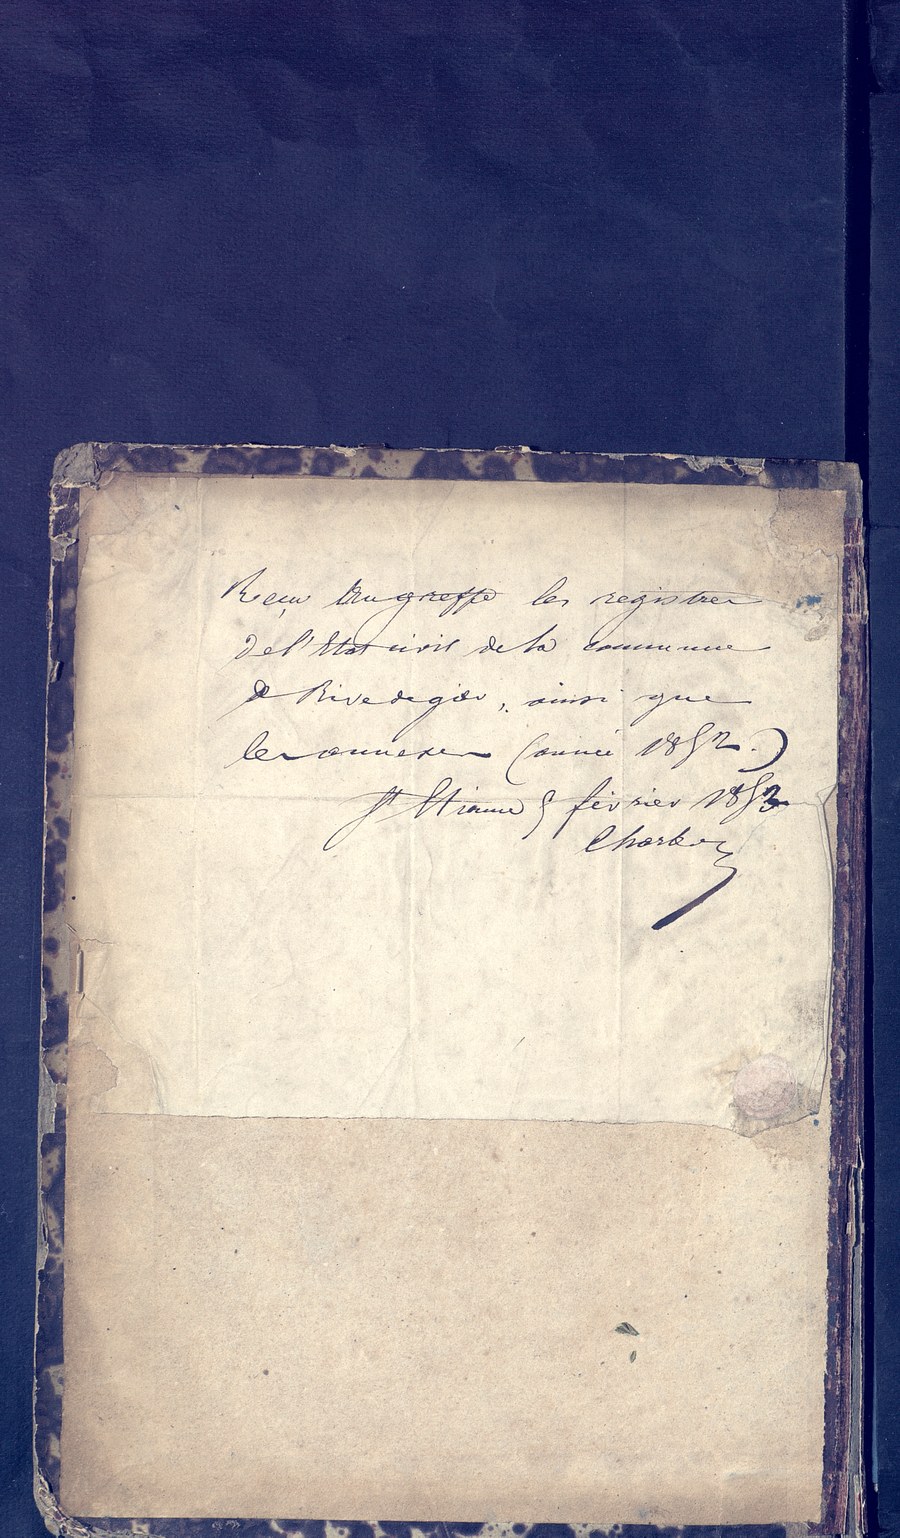 Reçu au greffe les registres
de l'Etat civil de la commune
de Rive de gier, ainsi que
les annexes (année 1852.)
St Etienne 5 février 1853